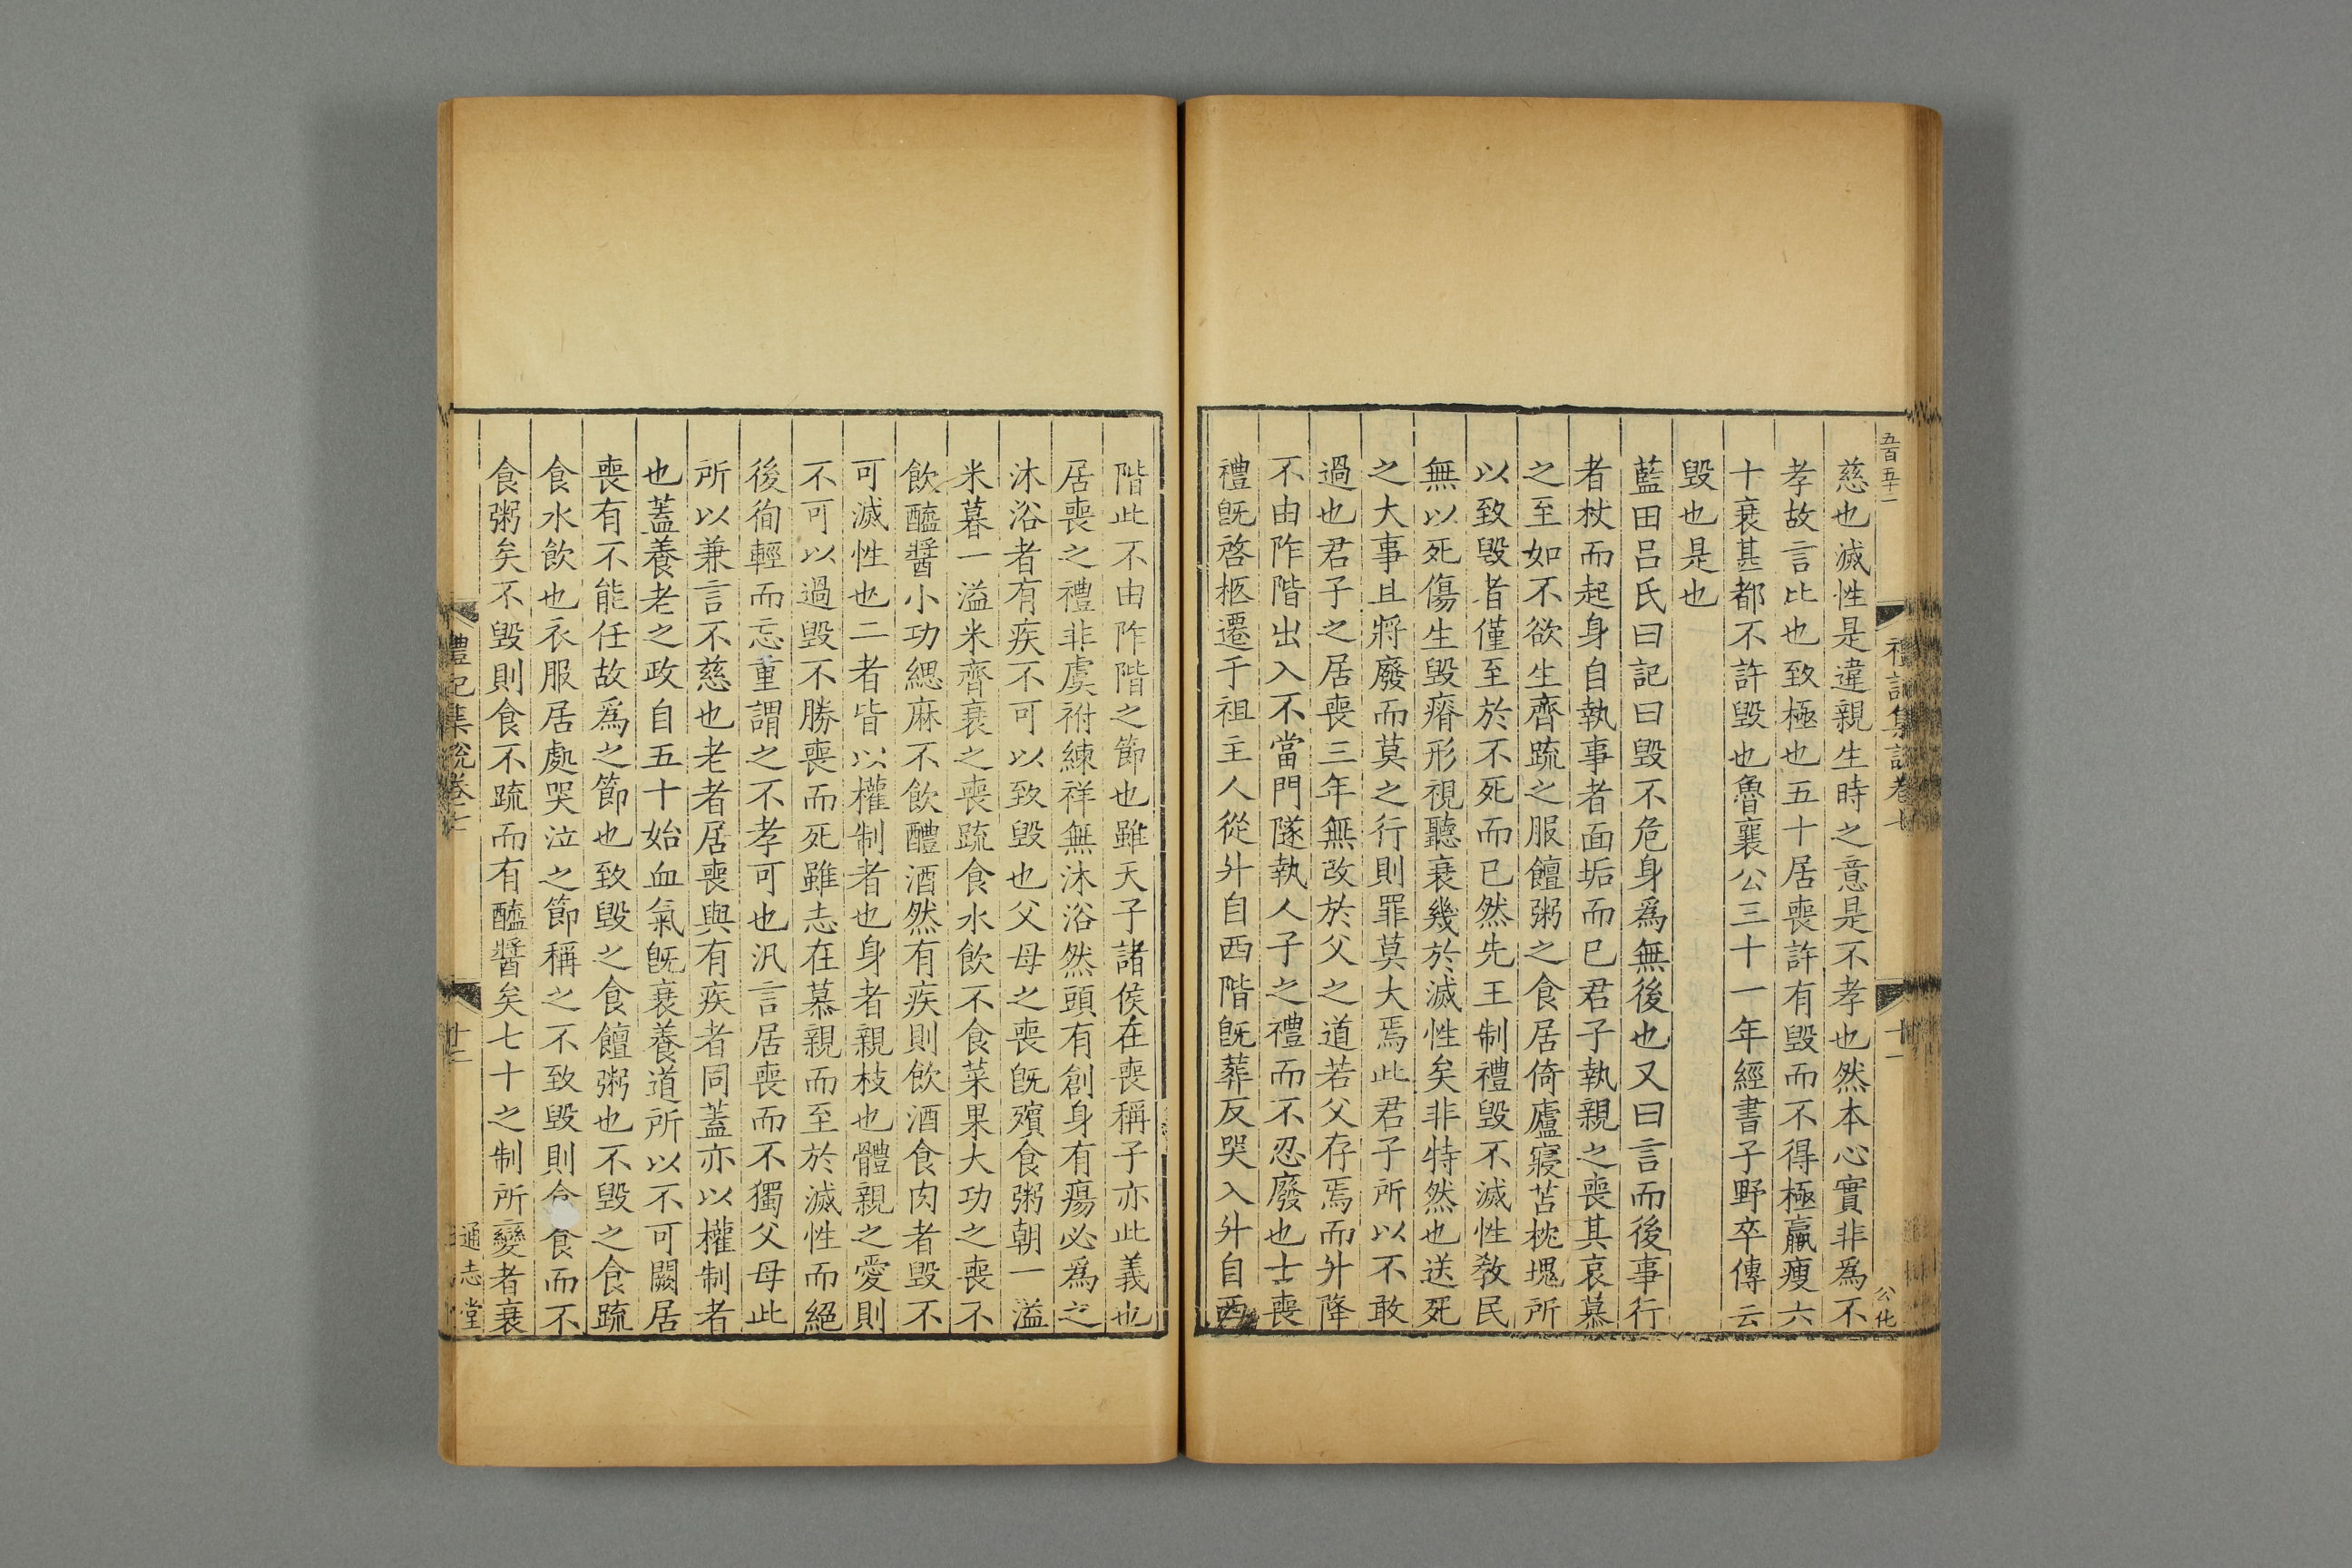 五百五十二
慈也滅性是違親生時之意是不孝也然本心實非爲不
孝故言比也致極也五十居喪許有毀而不得極羸瘦六
十衰甚都不許毀也魯襄公三十一年經書子野卒傳云
毀也是也
藍田吕氏曰記曰毀不危身爲無後也又曰言而後事行
者杖而起身自執事者面垢而已君子執親之喪其哀慕
之至如不欲生齊疏之服饘粥之食居倚廬寢苫枕塊所
以致毀者僅至於不死而已然先王制禮毀不滅性教民
無以死傷生毀瘠形視聽衰幾於滅性矣非特然也送死
之大事且將廢而莫之行則罪莫大焉此君子所以不敢
過也君子之居喪三年無改於父之道若父存焉而升降
不由阼階出入不當門隧執人子之禮而不忍廢也士喪
禮旣啓柩遷于祖主人從升自西階旣葬反哭入升自西
禮記集說卷七
十一
公化
階此不由阼階之節也雖天子諸侯在喪稱子亦此義也
居喪之禮非虞祔練祥無沐浴然頭有創身有瘍必爲之
沐浴者有疾不可以致毀也父母之喪旣殯食粥朝一溢
米暮一溢米齊衰之喪疏食水飲不食菜果大功之喪不
飲醯醬小功緦麻不飲醴酒然有疾則飲酒食肉者毀不
可滅性也二者皆以權制者也身者親枝也體親之愛則
不可以過毀不勝喪而死雖志在慕親而至於滅性而絕
後徇輕而忘重謂之不孝可也汎言居喪而不獨父母此
所以兼言不慈也老者居喪與有疾者同蓋亦以權制者
也蓋養老之政自五十始血氣旣衰養道所以不可闕居
喪有不能任故爲之節也致毀之食饘粥也不毀之食疏
食水飲也衣服居處哭泣之節稱之不致毀則食而不
食粥矣不毀則食不疏而有醯醬矣七十之制所變者衰
禮記集說卷七
十二
通志堂